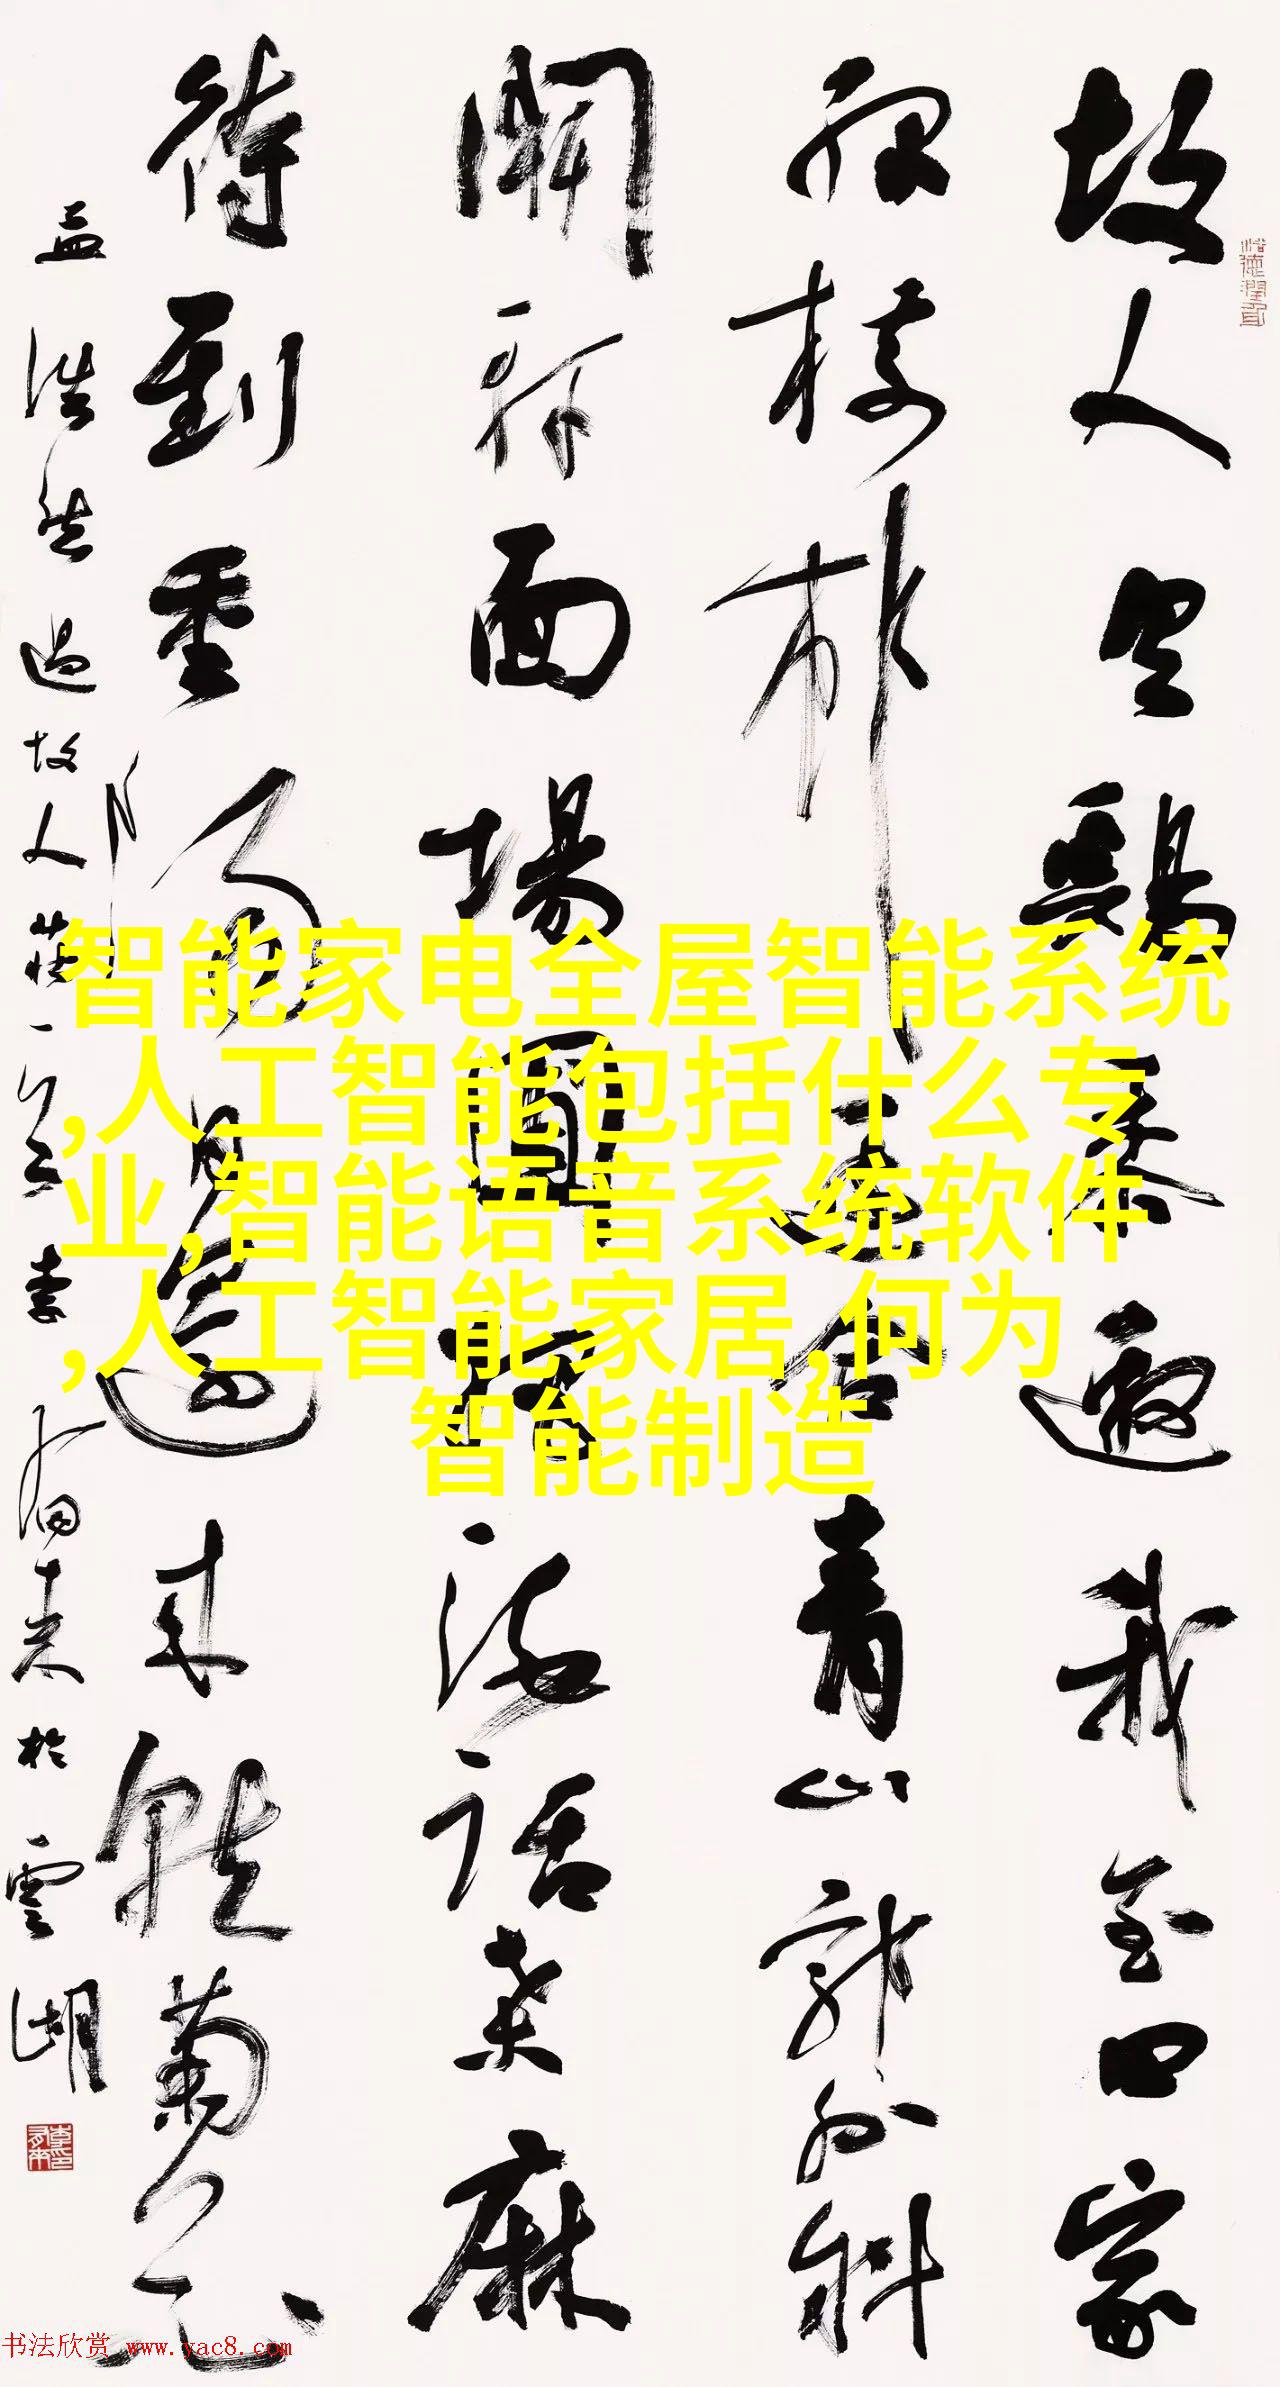 故人具鷄黍邀我至田家
綠樹村邊合青山郭外斜
開軒面場圃把酒話桑麻
待到重陽日還來就菊花
孟浩然過故人莊一首 李有来於雲湖
智能家电全屋智能系统
,人工智能包括什么专
业,智能语音系统软件
,人工智能家居,何为
智能制造
书法欣赏 www.yac8.com